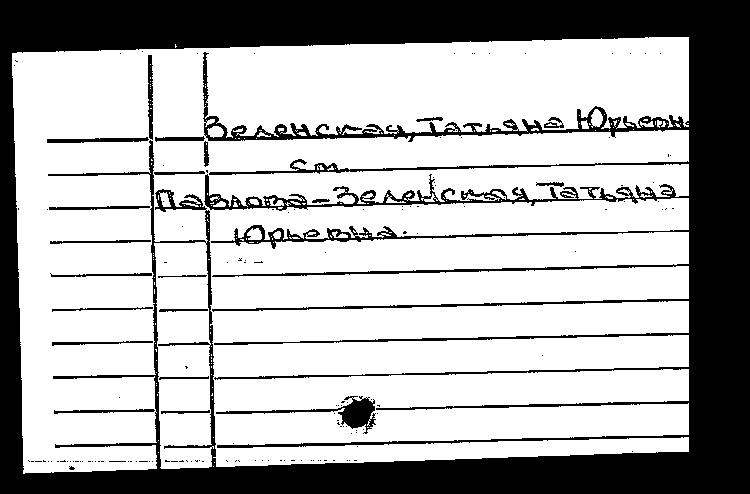 Зеленская, Татьяна Юрьевна
см.
Павлова-Зеленская, Татьяна
Юрьевна.